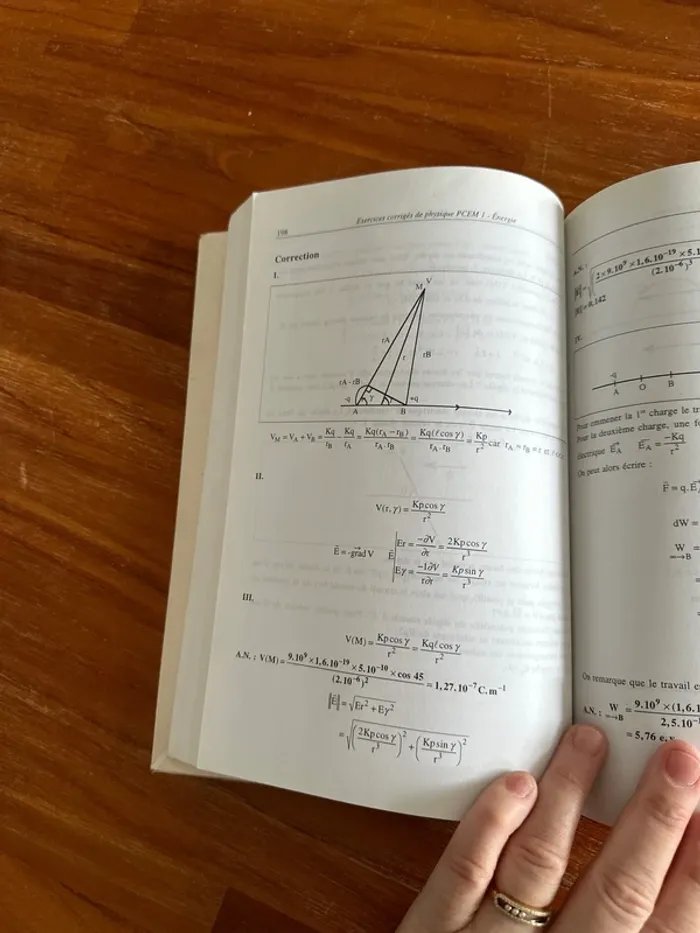 198
Exercices corrigés de physique PCEM 1 - Énergie
Correction
I.
M V
rA r rB
rA - rB
-q γ +q
A B
V_M = V_A + V_B = Kq/r_B - Kq/r_A = Kq(r_A − r_B)/(r_A . r_B) = Kq(ℓ cos γ)/(r_A . r_B) = Kp/r² car r_A ≈ r_B ≈ r et
II.
V(r, γ) = Kp cos γ/r²
E⃗ = -grad⃗ V E⃗ | Er = −∂V/∂r = 2Kp cos γ/r³
Eγ = −1∂V/r∂r = Kp sin γ/r³
III.
V(M) = Kp cos γ/r² = Kqℓ cos γ/r²
A.N. : V(M) = 9.10⁹ × 1,6.10⁻¹⁹ × 5.10⁻¹⁰ × cos 45/(2.10⁻⁶)² = 1,27.10⁻⁷ C.m⁻¹
|E⃗| = √(Er² + Eγ²)
= √((2Kp cos γ/r³)² + (Kp sin γ/r³)²)
A.N. :
√(2×9.10⁹ × 1,6.10⁻¹⁹ × 5.1
(2.10⁻⁶)³
= 0,142
IV.
-q
A O B
Pour emmener la 1ère charge le tr
Pour la deuxième charge, une fo
électrique E⃗_A E⃗_A = −Kq/r²
On peut alors écrire :
F⃗ = q.E⃗
dW =
W →B =
=
=
On remarque que le travail es
A.N. : W →B = 9.10⁹ × (1,6.1
2,5.10⁻
= 5,76 e.v